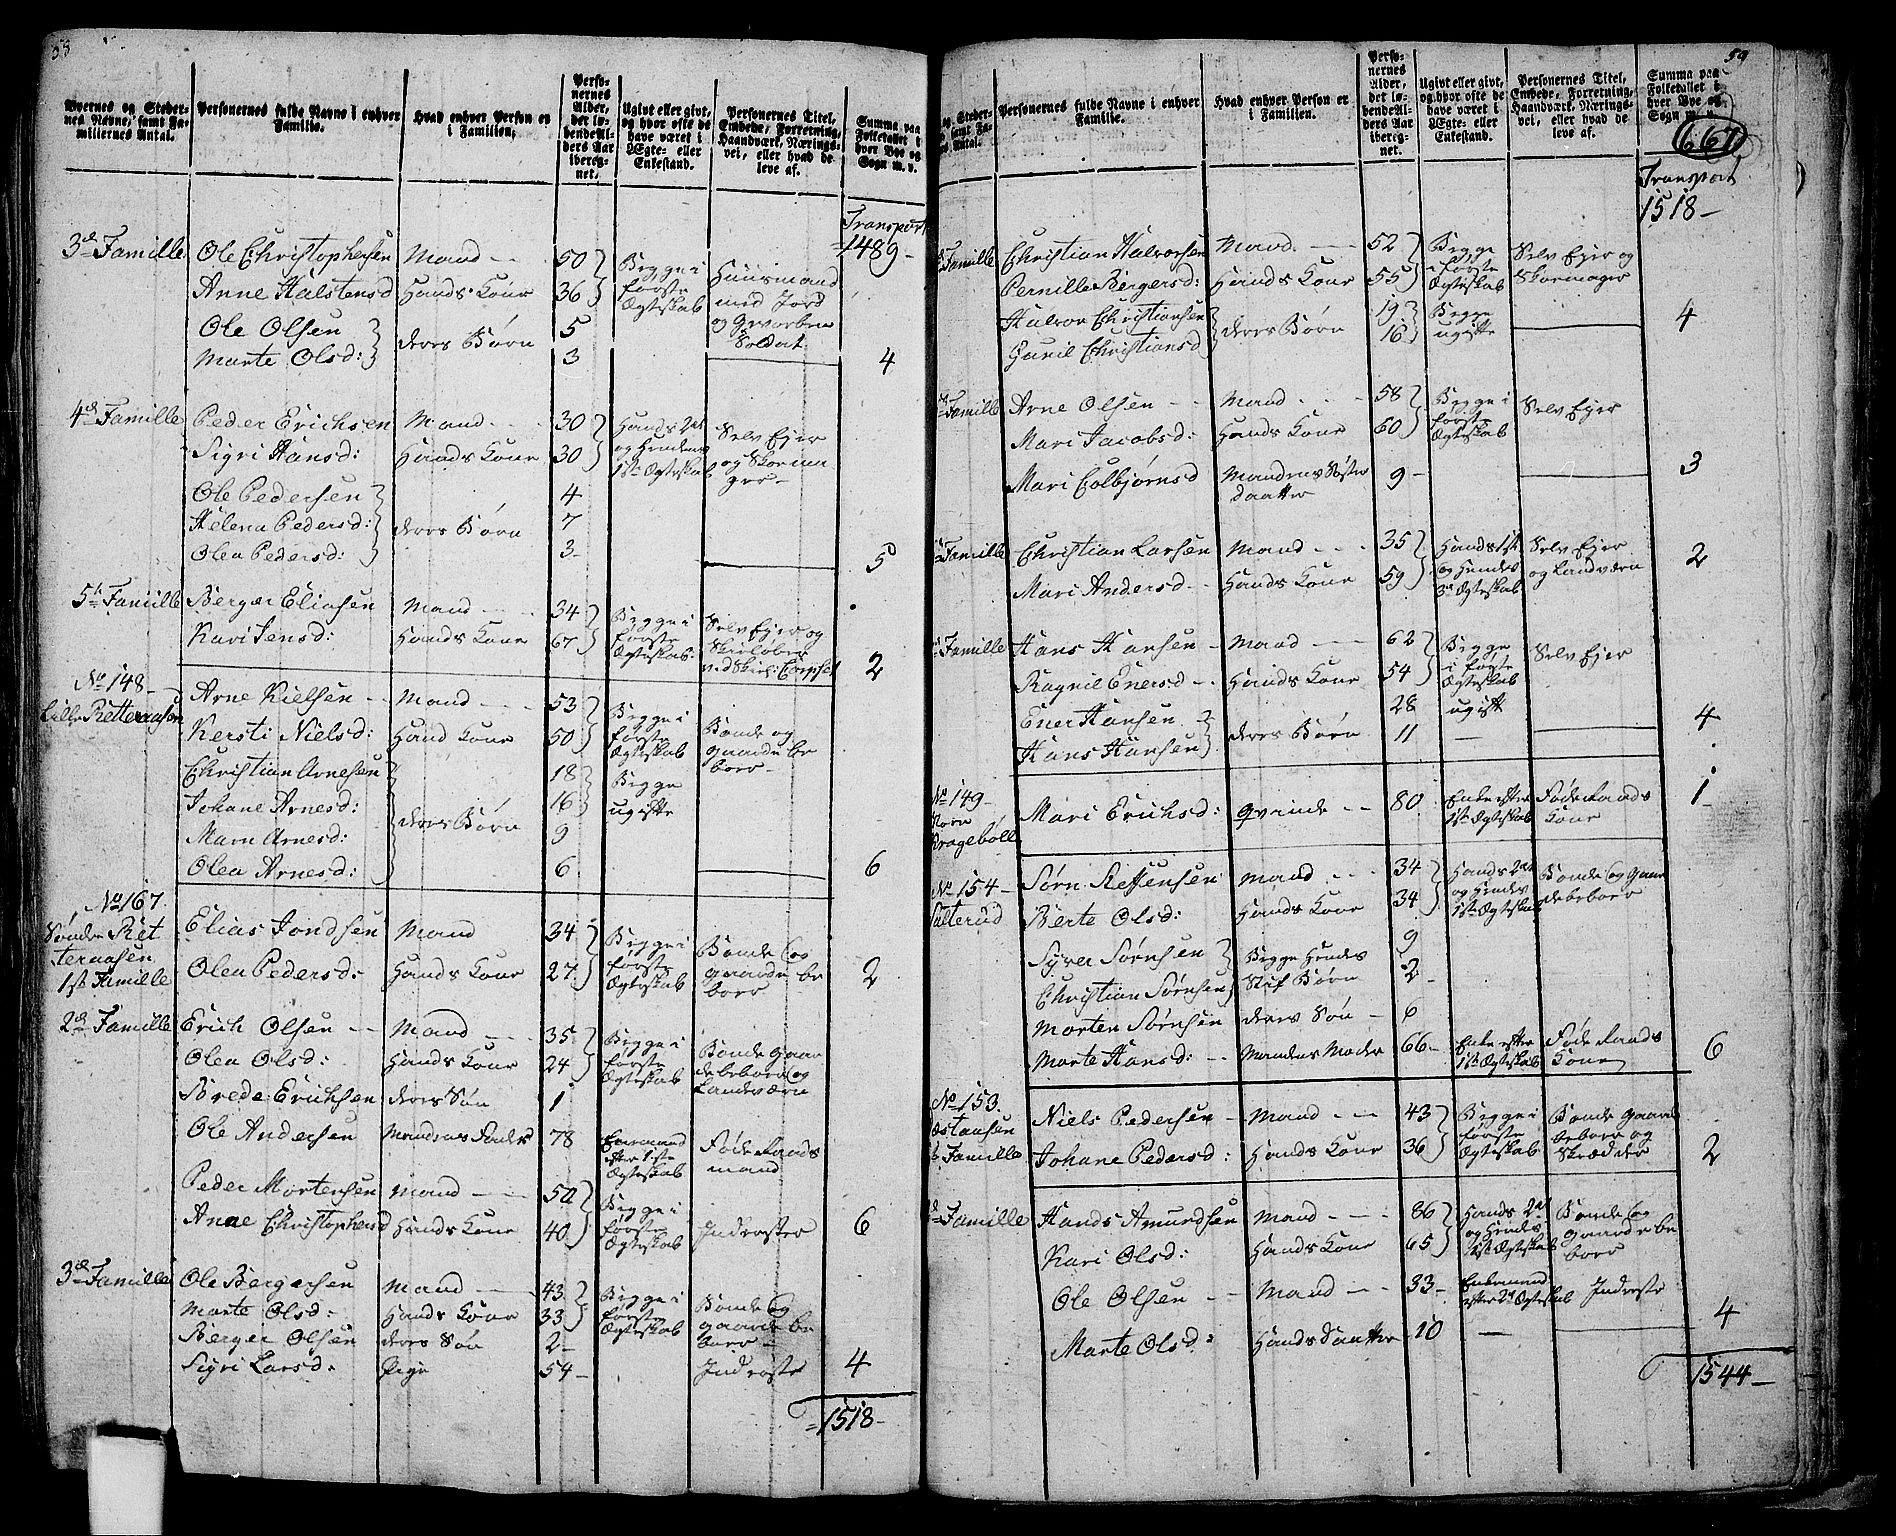 58
Byernes og Steder-
nes Navne, samt Fa-
miliernes Antal.
Personernes fulde Navne i enhver
Familie.
Hvad enhver Person er
i Familien.
Perso-
nernes
Alder,
det lø-
bende Al-
ders Aar
ibereg-
net.
Ugivt eller givt,
og hvor ofte de
have været i
Ægte- eller
Enkestand.
Personernes Titel,
Embede, Forretning,
Haandværk, Nærings-
vei, eller hvad de
leve af.
Summa paa
Folketallet i
hver Bye og
Sogn m. v.
Transport
1489-
3de Familie Ole Christophersen Mand 50 Begge i Huusmand
Anne Halstensd Hands Kone 36 første med Jord
Ægteskab
Ole Olsen deres Børn 5 og Gevorben
Soldat
Marte Olsd: 3 4
4de Familie Peder Erichsen Mand 30 Hands 2det Selv Ejer
Sigri Hansd: Hands Kone 30 og Hendes og Skoema
1ste Ægteskab ger
Ole Pedersen 4
Helena Pedersd: deres Børn 7
Olea Pedersd: 3 5
5te Familie Berger Eliasen Mand 34 Begge i Selv Ejer og
Kari Jensd: Hands Kone 67 første Skieløber
Ægteskab ved Skiel: Corpset 2
No 148-
Lille Retteraasen Arne Nielsen Mand 53 Begge i Bonde og
Kersti Nielsd: Hand Kone 50 første gaarde be
Ægteskab boer
Christian Arnesen 18 Begge
Johane Arnesd: deres Børn 16 ugifte
Maren Arnesd: 9
Olea Arnesd: 6 6
No 167
Søndre Ret
teraasen
1st Familie Elias Jondsen Mand 34 Begge i Bonde og
Olea Pedersd: Hands Kone 27 første gaarde be
Ægteskab boer 2
2de Familie Erich Olsen Mand 35 Begge i Bonde gaar
Olea Olsd: Hands Kone 24 første de beboer og
Ægteskab Landværn
Brede Erichsen deres Søn 1
Ole Andersen Mandens Fader 78 Enkemand Føde Raads
efter 1ste mand
Ægteskab
Peder Mortensen Mand 50 Begge i
Anne Christophersd Hands Kone 40 første Inderster 6
Ægteskab
3de Familie Ole Bergersen Mand 43 Begge i Bonde og
Marte Olsd: Hands Kone 33 første gaarde be
Berger Olsen deres Søn 2 Ægteskab boer
Sigri Larsd: Pige 54 Inderste 4
1518-
59
og Steder-
samt Fa-
Antal.
Personernes fulde Navne i enhver
Familie.
Hvad enhver Person er
i Familien.
Perso-
nernes
Alder,
det lø-
bende Al-
ders Aar
ibereg-
net.
Ugivt eller givt,
og hvor ofte de
have været i
Ægte- eller
Enkestand.
Personernes Titel,
Embede, Forretning,
Haandværk, Nærings-
vei, eller hvad de
leve af.
Summa paa
Folketallet i
hver Bye og
Sogn m. v.
667
Transport
1518-
Familie Christian Halvorsen Mand 52 Begge Selv Ejer og
Pernille Bergersd: Hands Kone 55 i første Skoemager
Ægteskab
Halvor Christiansen deres Børn 19 Begge
Gunil Christiansd 16 ugifte 4
Familie Arne Olsen Mand 58 Begge i Selv Ejer
Mari Jacobsd: Hands Kone 60 første
Ægteskab
Mari Colbjørnsd Mandens Søster 9 3
Daatter
Familie Christian Larsen Mand 35 Hands 1st Selv Ejer
Mari Andersd Hands Kone 59 og Hendes og Landværn 2
3de Ægteskab
Familie Hans Hansen Mand 62 Begge Selv Ejer
Ragnil Enersd Hands Kone 54 i første
Ægteskab
Ener Hansen deres Børn 28 ugift
Hans Hansen 11 4
No 149-
Mari Erichsd: Qvinde 80 Enke efter Føde Raads 1
1ste Ægteskab Kone
No 154- Sørn Mand 34 Hands 2det Bonde og Gaar
Berte Olsd: Hands Kone 34 og Hendes debeboer
1ste Ægteskab
Syver Sørnsen Begge Hendes 9
Christian Sørnsen Stif Børn 2
Morten Sørnsen deres Søn 6
Marte Hansd: Mandens Moder 66 Enke efter Føde Raads 6
1ste Ægteskab Kone
No 153
Familie Niels Pedersen Mand 43 Begge i Bonde gaard
Johane Pedersd: Hands Kone 36 første beboer og
Ægteskab Skrædder 2
Familie Hands Amundsen Mand 86 Hands 2det Bonde og
Kari Olsd: Hands Kone 65 og Hendes gaarde be
1st Ægteskab boer
Ole Olsen Mand 33 Enkemand Inderste
efter 2det Ægteskab
Marte Olsd: Hands Daatter 10 4
1544-